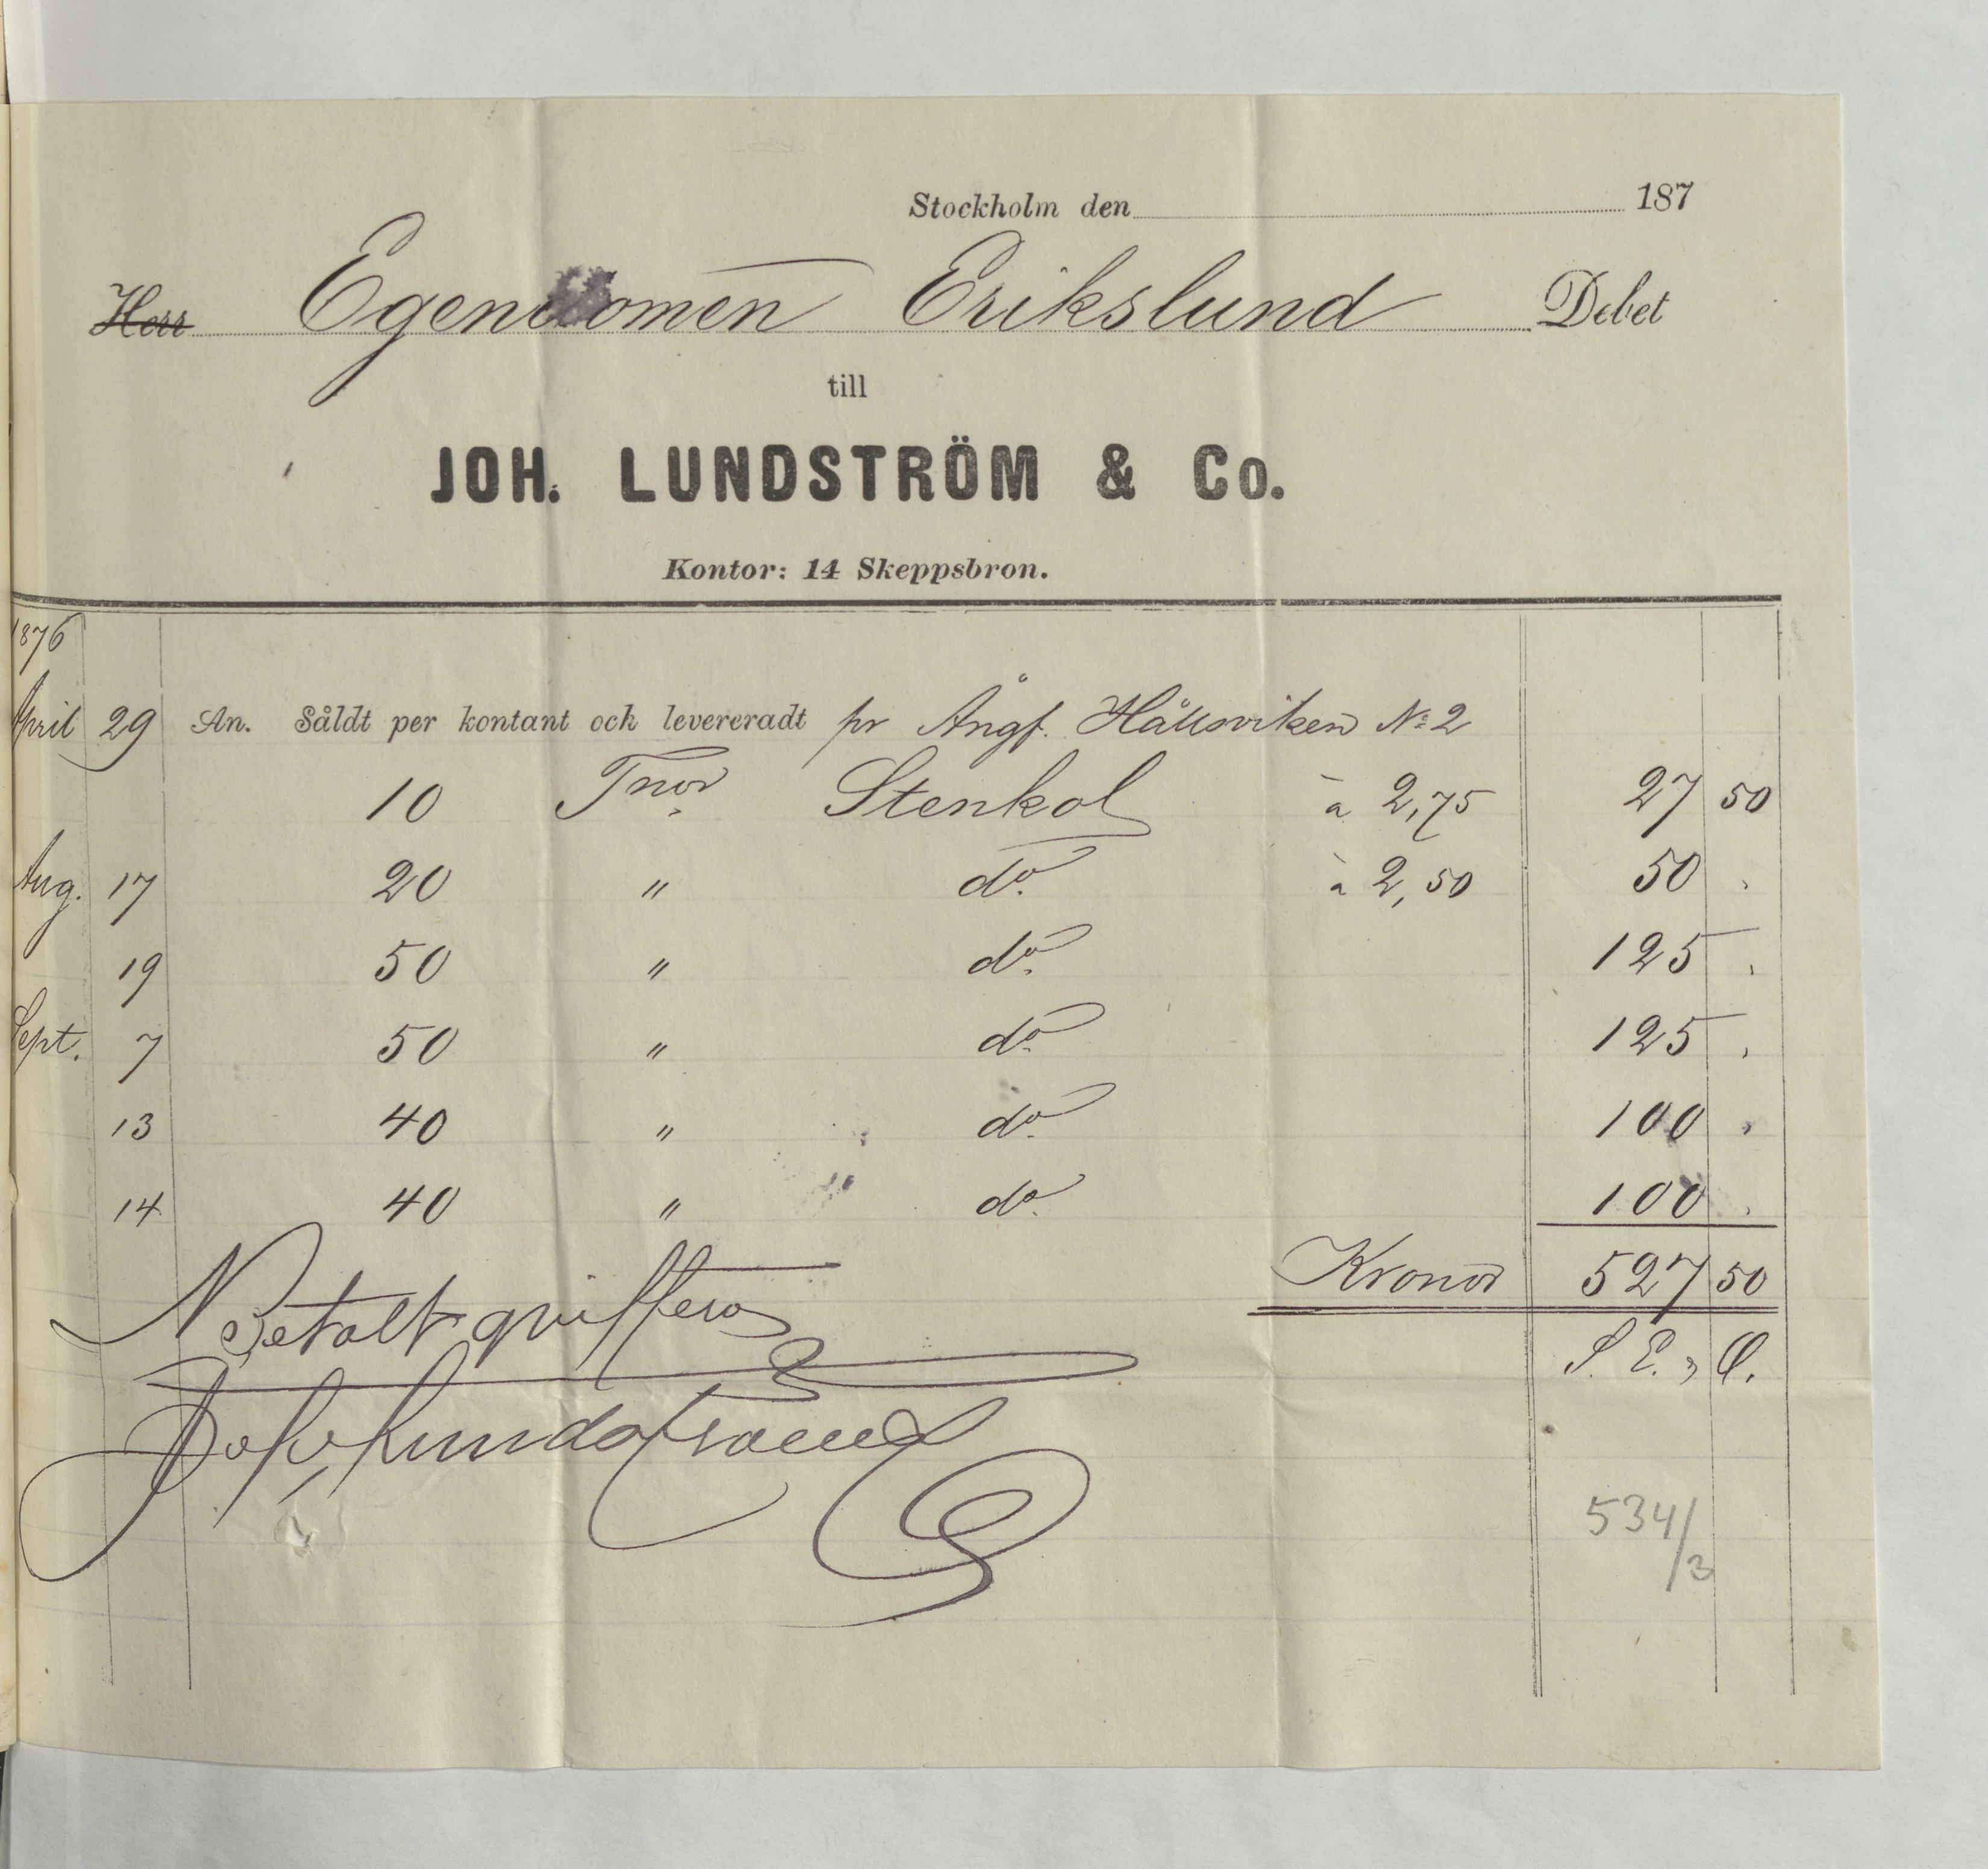 Stockholm den 187
Herr Egendomen Erikslund Debet
till
JOH. LUNDSTRÖM & Co.
Kontor: 14 Skeppsbron.
1876
April 29 An. Såldt per kontant och levereradt pr Ångf. Hållsviken No 2
10 Tnor Stenkol à 2,75 27 50
Aug. 17 20 " do. à 2,50 50 ,
19 50 " do. 125 ,
Sept. 7 50 " do. 125 ,
13 40 " do. 100 ,
14 40 " do. 100 ,
Kronor 527 50
Betalt qvitteras
S. E. & O.
Joh. Lundström & Co
534/3